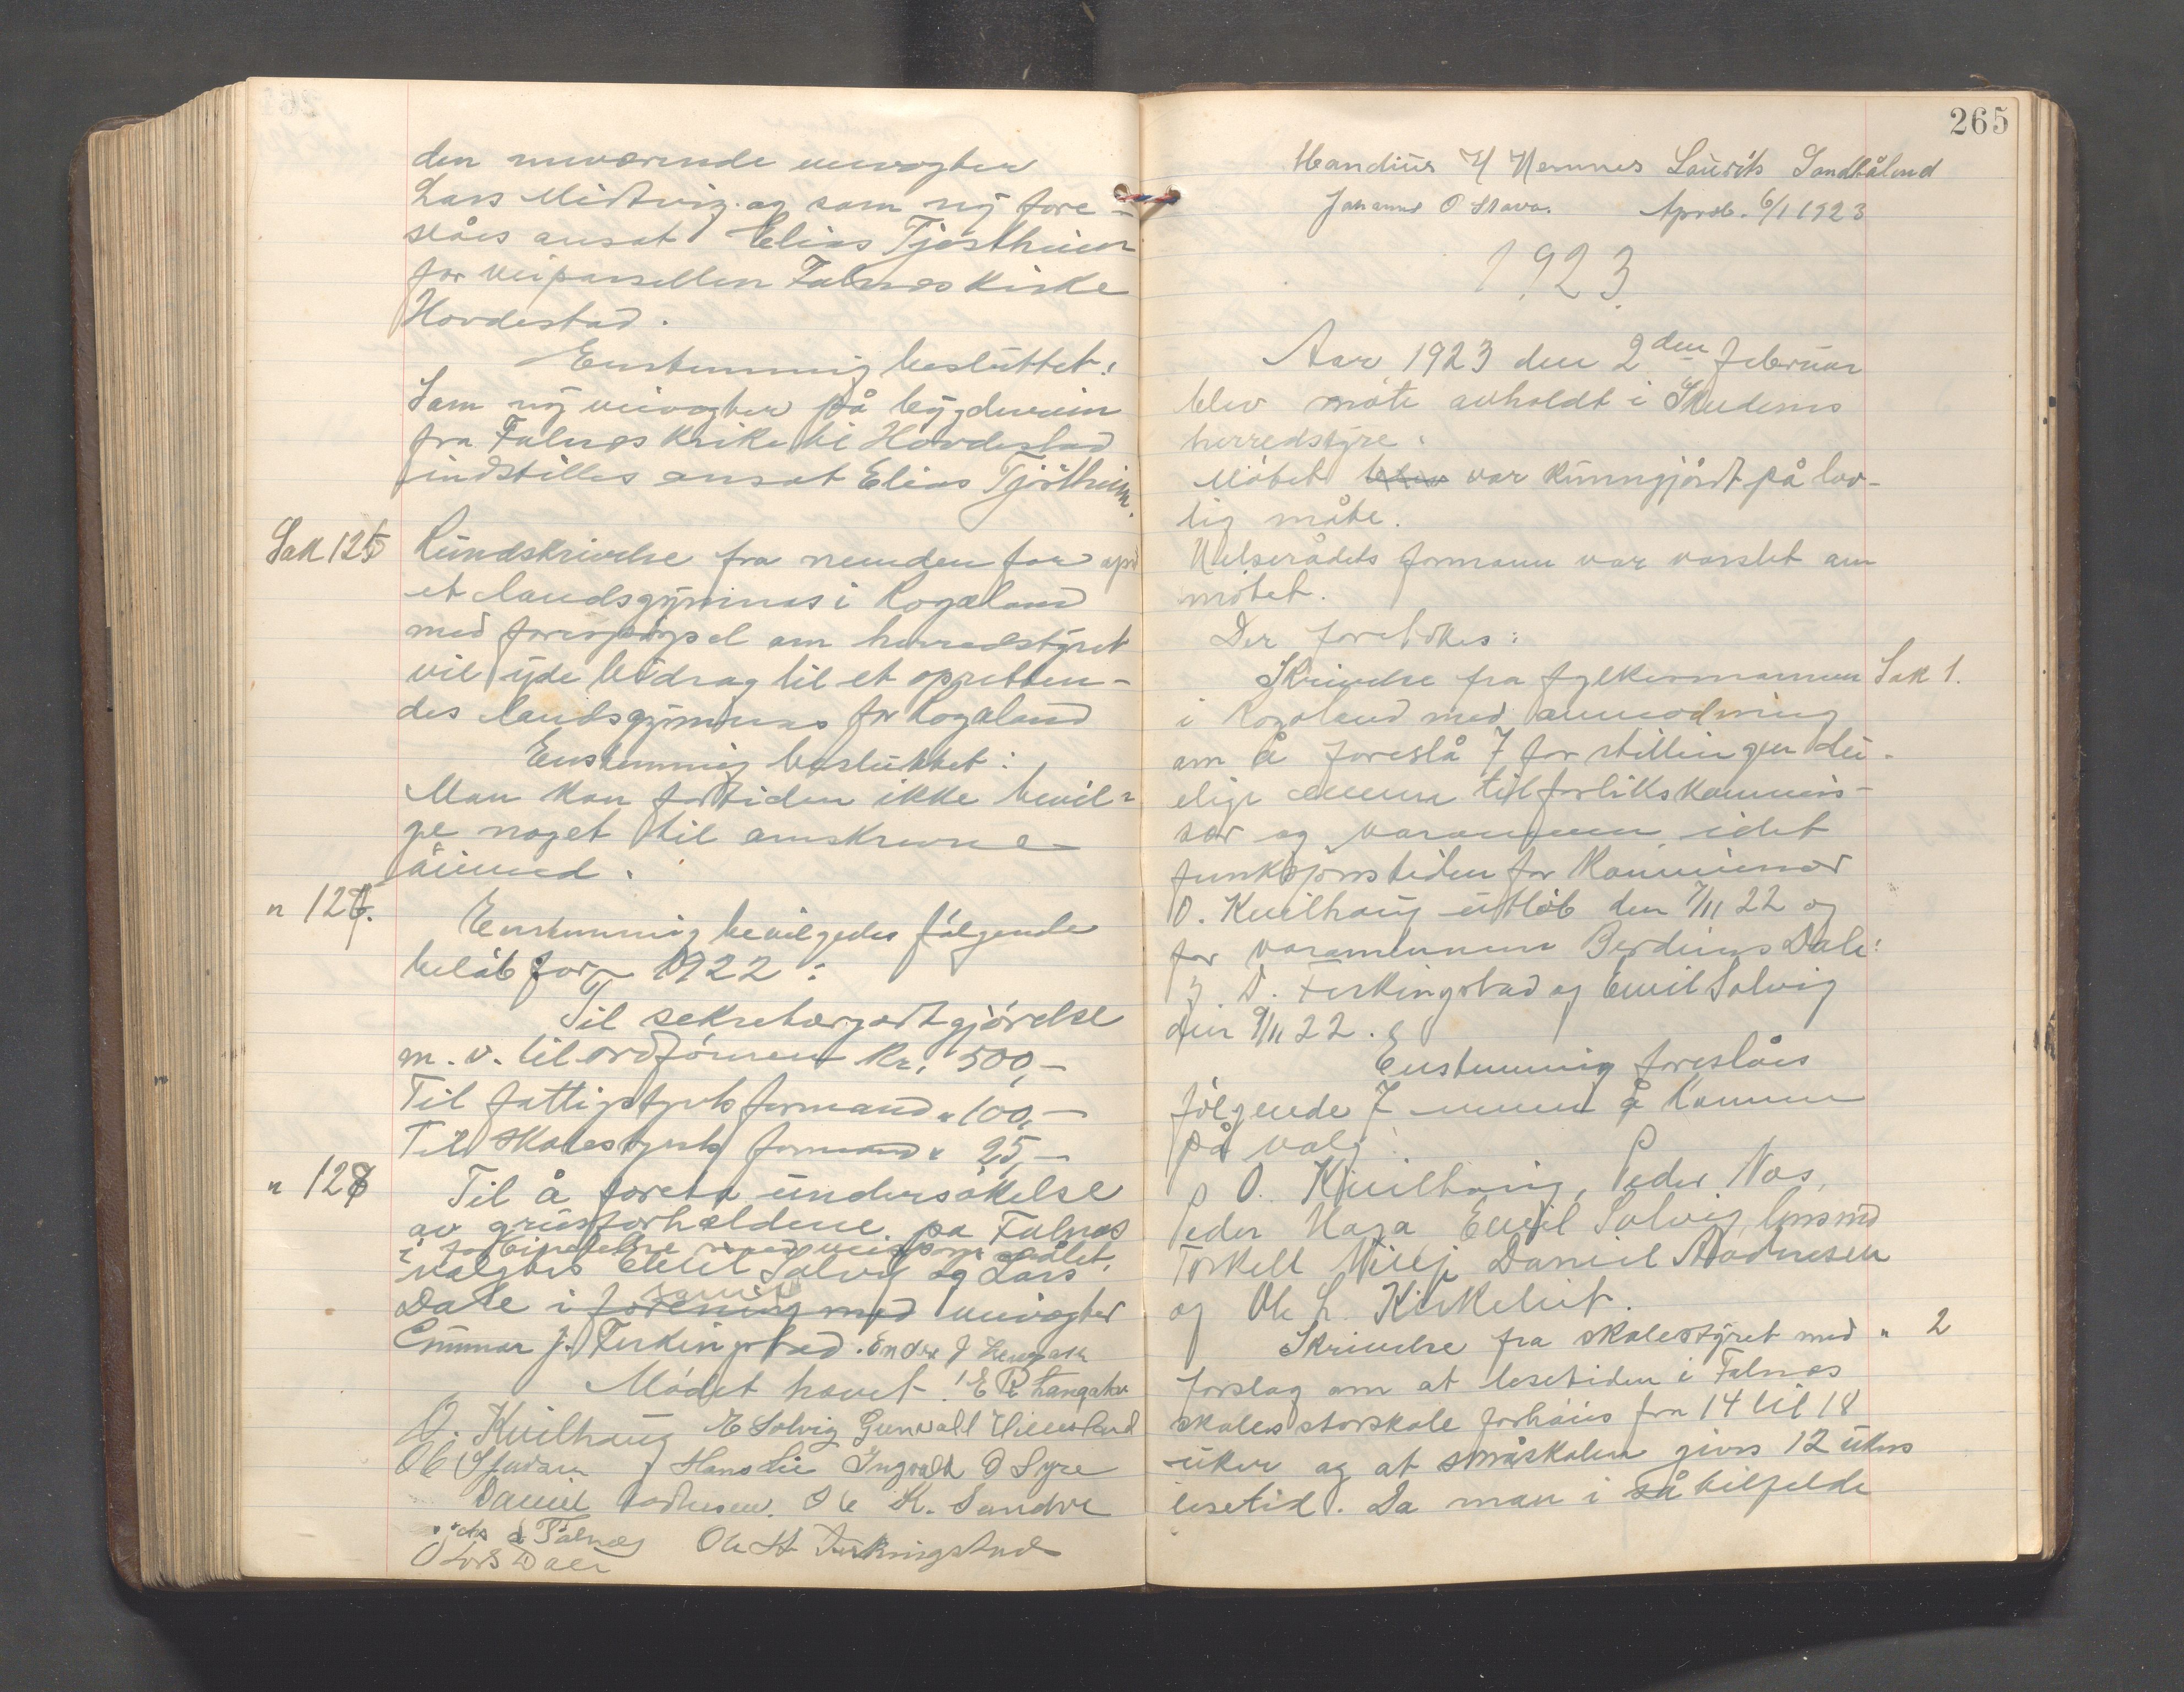 den nuværende veivogter
Lars Midtvig. og som ny fore-
slåes ansat Elias Tjøstheim
for veiparsellen Falnes kirke
Hovdestad.
Enstemmig besluttet:
Som ny veivogter på bygdeveien
fra Falnes kirke til Hovdestad
indstilles ansat Elias Tjöstheim.
Sak 125 Rundskrivelse fra nemden for
et landsgymnas i Rogaland
med forespörgsel om herredstyret
vil yde bidrag til et opretten-
des landsgymnas for Rogaland
Enstemmig besluttet:
Man kan fortiden ikke bevil-
ge noget til omskrevne
öiemed.
" 126. Enstemmig bevilgedes fölgende
belöb for 1922:
Til sekretærgodtgjörelse
m.v. til ordföreren kr. 500,-
Til fattigstyrets formand " 100,-
Til skolestyrets formand " 25,-
" 127 Til å foreta undersökelse
av grusforholdene på Falnes
i forbindelse med veispörsmålet.
valgtes Emil Solvig og Lars
Dale i forening med veivogter
samt
Gunnar J. Ferkingstad. Endre J
Mödet hævet. E R Langaker
O. Kvilhaug E Solvig Gunvald Hillesland
Ole Hans Lie Ingvald O Syre
Daniel Ole K. Sandve
d Falnes Ole H Ferkingstad
Lars Dale
265
H Hemnes Laurits Sandbålend
Johannes O Stava. 6/1 1923
1923
Aar 1923 den 2den februar
blev möte avholdt i Skudenes
herredstyre.
Mötet blev var kunngjördt på lov-
lig måte.
Helserådets formann var varslet om
mötet.
Der foretokes:
Skrivelse fra fylkesmannen Sak 1.
i Rogaland med anmodning
om å foreslå 7 for stillingen tjen-
lige menn til forlikskommis-
sær og varamenn idet
funksjonstiden for kommissær
O. Kvilhaug utlöb den 7/11 22 og
for varamennene Berdines Dale:
D. Ferkingstad og Emil Solvig
den 9/11 22.
Enstemmig foreslåes
fölgende 7 menn å komme
på valg:
O. Kvilhaug, Peder Nes,
Peder Haga Emil Solvig
Torkell Daniel Aadnesen
og Ole L. Kirkeleit.
Skrivelse fra skolestyret med " 2
forslag om at lesetiden i Falnes
skoles storskole forhöies fra 14 til 18
uker og at småskolen gives 12 ukers
lesetid. Da man i så tilfelde